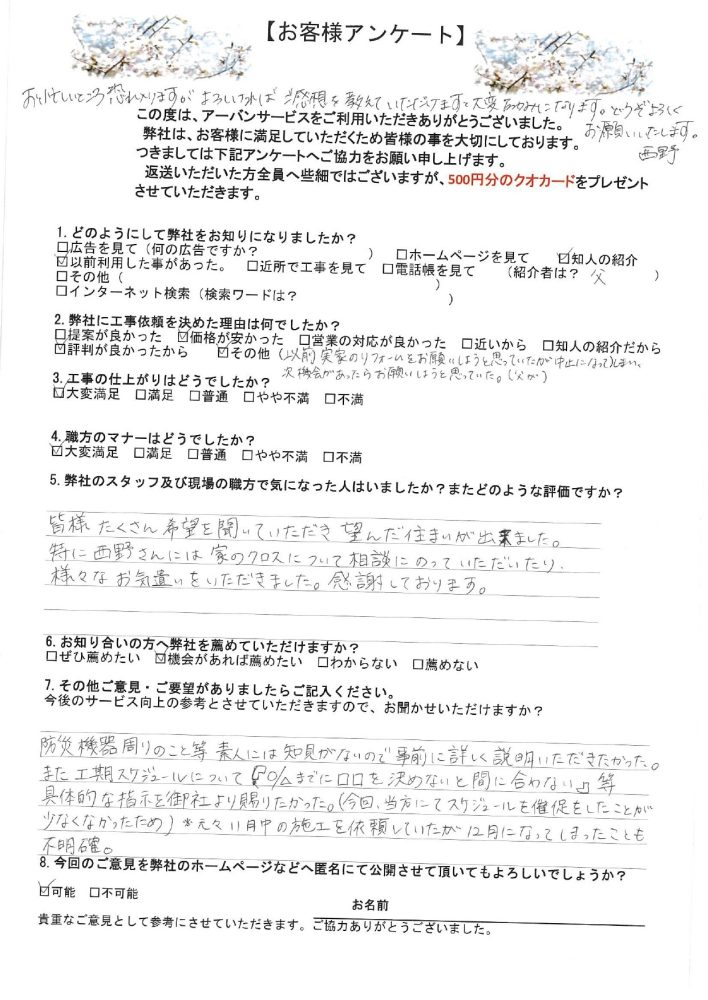 【お客様アンケート】
お忙しいところ恐れ入りますが よろしければ ご感想を教えていただけますと大変励みになります。どうぞよろしく
お願いいたします。
西野
この度は、アーバンサービスをご利用いただきありがとうございました。
弊社は、お客様に満足していただくため皆様の事を大切にしております。
つきましては下記アンケートへご協力をお願い申し上げます。
返送いただいた方全員へ些細ではございますが、500円分のクオカードをプレゼント
させていただきます。
1. どのようにして弊社をお知りになりましたか？
□広告を見て（何の広告ですか？ ） □ホームページを見て ☑知人の紹介
☑以前利用した事があった。 □近所で工事を見て □電話帳を見て （紹介者は？ 父 ）
□その他（ ）
□インターネット検索（検索ワードは？ ）
2. 弊社に工事依頼を決めた理由は何でしたか？
□提案が良かった ☑価格が安かった □営業の対応が良かった □近いから □知人の紹介だから
☑評判が良かったから ☑その他（以前 実家のリフォームをお願いしようと思っていたが中止になってしまい、
次機会があったらお願いしようと思っていた。（父が）
3. 工事の仕上がりはどうでしたか？
☑大変満足 □満足 □普通 □やや不満 □不満
4. 職方のマナーはどうでしたか？
☑大変満足 □満足 □普通 □やや不満 □不満
5. 弊社のスタッフ及び現場の職方で気になった人はいましたか？またどのような評価ですか？
皆様 たくさん 希望を聞いていただき 望んだ住まいが出来ました。
特に 西野さんには 家のクロスについて相談にのっていただいたり、
様々な お気遣いをいただきました。感謝しております。
6. お知り合いの方へ弊社を薦めていただけますか？
□ぜひ薦めたい ☑機会があれば薦めたい □わからない □薦めない
7. その他ご意見・ご要望がありましたらご記入ください。
今後のサービス向上の参考とさせていただきますので、お聞かせいただけますか？
防災機器周りのこと等 素人には知見がないので事前に詳しく説明いただきたかった。
また 工期スケジュールについて『○/△までに口口を決めないと間に合わない』等
具体的な指示を御社より賜りたかった。（今回、当方にてスケジュールを催促をしたことが
少なくなかったため）＊元々11月中の施工を依頼していたが12月になってしまったことも
不明確。
8. 今回のご意見を弊社のホームページなどへ匿名にて公開させて頂いてもよろしいでしょうか？
☑可能 □不可能
お名前
貴重なご意見として参考にさせていただきます。ご協力ありがとうございました。